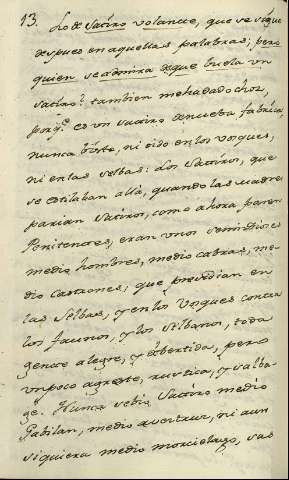 13. Lo de Satiro volante, que se sigue
despues en aquellas palabras; pero
quien se admira de que buela un
Satiro? tambien me ha dado choz,
porq.e es un Satiro de nueba fabrica,
nunca visto, ni oido en los vosques,
ni en las selbas: Los Satiros, que
se estilaban allà, quando las madres
parian Satiros, como ahora paren
Penitentes, eran unos semidioses
medio hombres, medio cabras, me-
dio castrones; que presidian en
las Selbas, y en los Vosques con ca
los faunos, y los Silbanos, toda
gente alegre, y dibertida, pero
un poco agreste, rustica, y salba-
ge. Nunca sebió Satiro medio
Gabilan, medio avestruz, ni aun
siquiera medio morcielago, sas